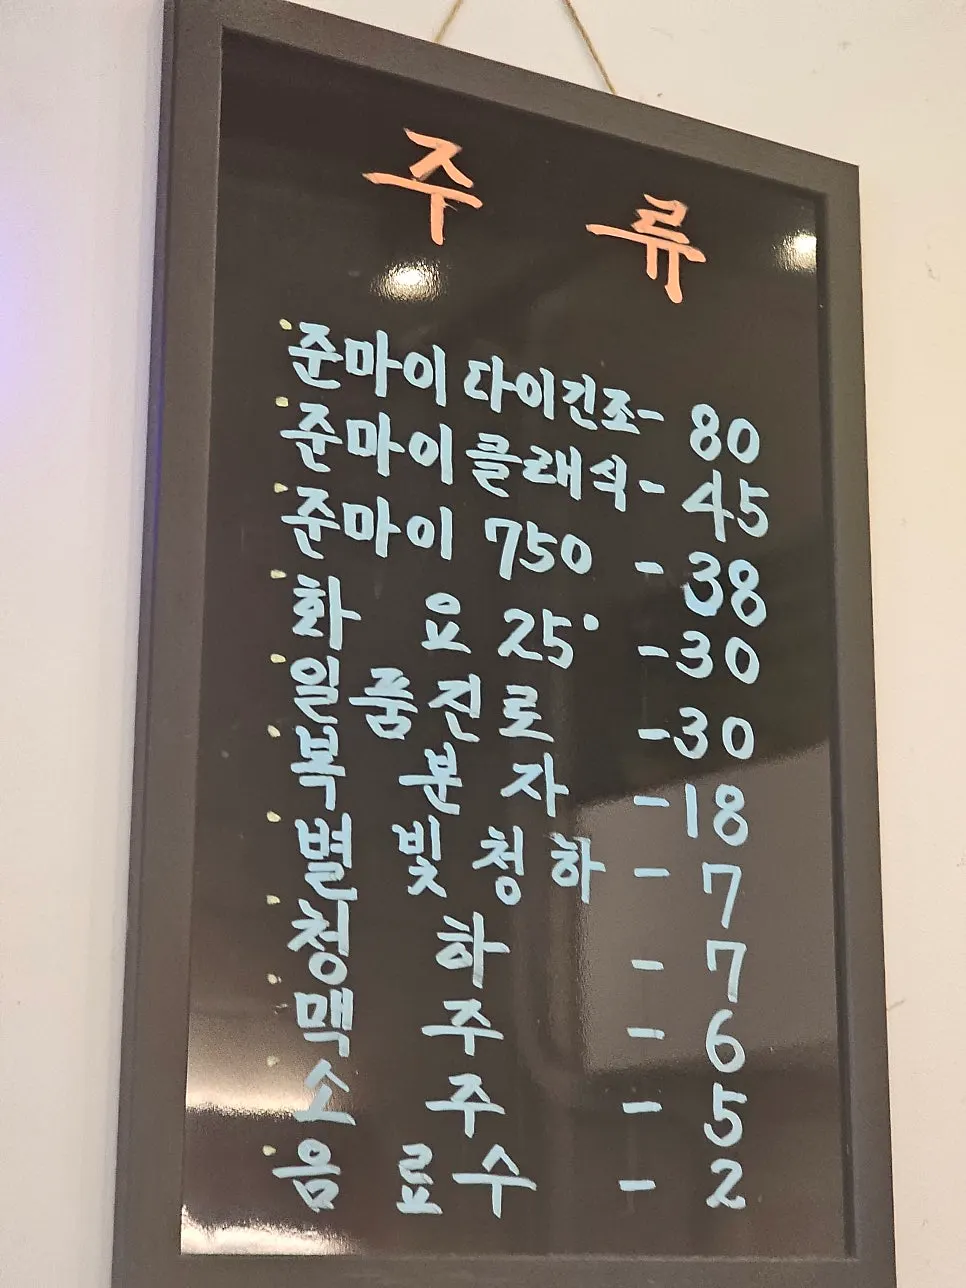 주류
준마이 다이긴조 - 80
준마이 클래식 - 45
준마이 750 - 38
화요 25° - 30
일품진로 - 30
복분자 - 18
별빛청하 - 7
청하 - 7
맥주 - 6
소주 - 5
음료수 - 2